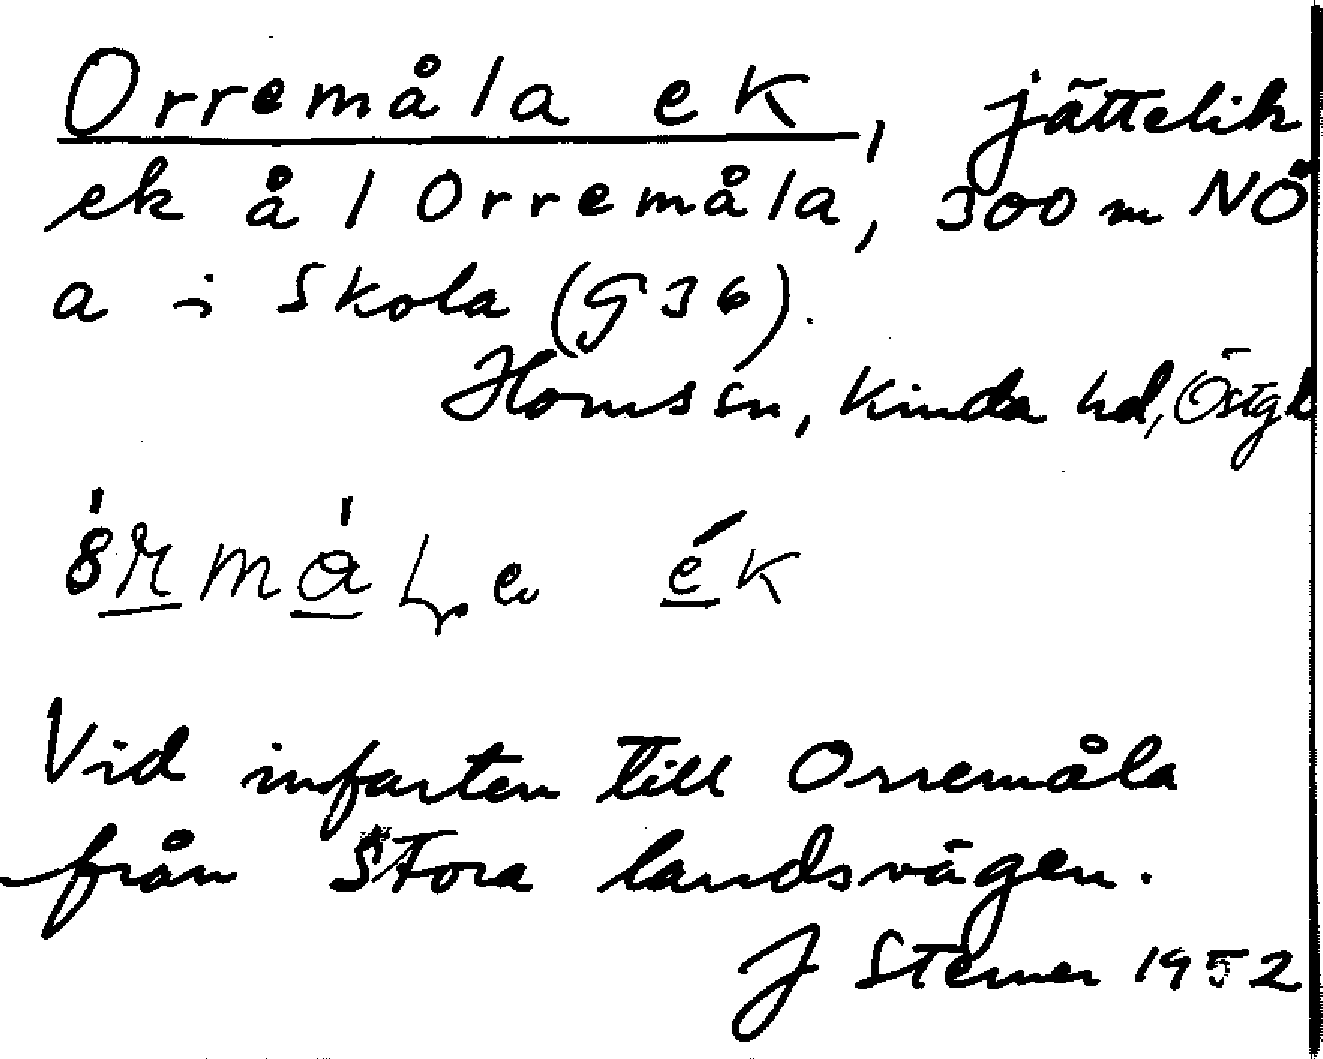 Orremåla ek, jättelik
ek å 1 Orremåla, 300 m NÖ
a i Skola (G36).
Hovs sn, Kinda hd, Östgl
Vid infarten till Orremåla
från stora landsvägen.
J Sterner 1952